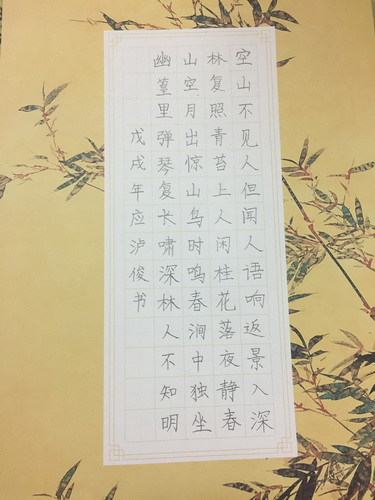 空山不见人但闻人语响返景入深
林复照青苔上人闲桂花落夜静春
山空月出惊山鸟时鸣春涧中独坐
幽篁里弹琴复长啸深林人不知明
戊戌年应泸俊书